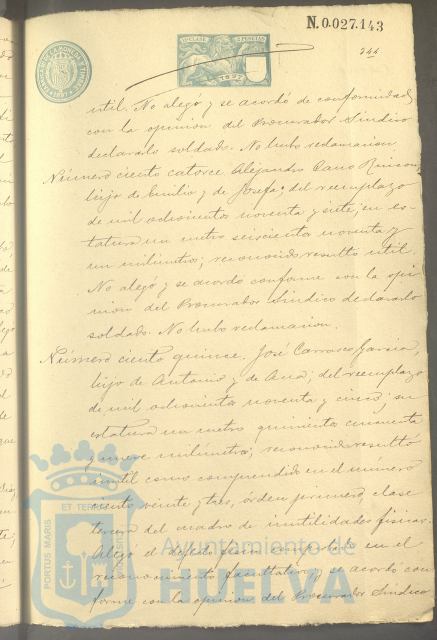 N.0.027.143
244
útil. No alegó y se acordó de conformidad
con la opinion del Procurador Sindico
declararlo soldado. No hubo reclamacion.
Número ciento catorce. Alejandro Cano Rincon,
hijo de Emilio y de Josefa; del reemplazo
de mil ochocientos noventa y siete; su es-
tatura un metro seiscientos noventa y
un milimetros; reconocido resultó util.
No alegó y se acordó conforme con la opi-
nion del Procurador Sindico declararlo
soldado. No hubo reclamacion.
Número ciento quince. José Carrasco Garcia,
hijo de Antonio y de Ana; del reemplazo
de mil ochocientos noventa y cinco; su
estatura un metro quinientos cincuenta
y nueve milimetros; reconocido resultó
inutil como comprendido en el número
ciento veinte y tres, órden primero, clase
tercera del cuadro de inutilidades fisicas.
Alegó el defecto comprobado en el
reconocimiento facultativo, y se acordó con
forme con la opinion del Procurador Sindico
PORTUS MARIS
ET TERRAE
CUSTODIA
Ayuntamiento de
HUELVA